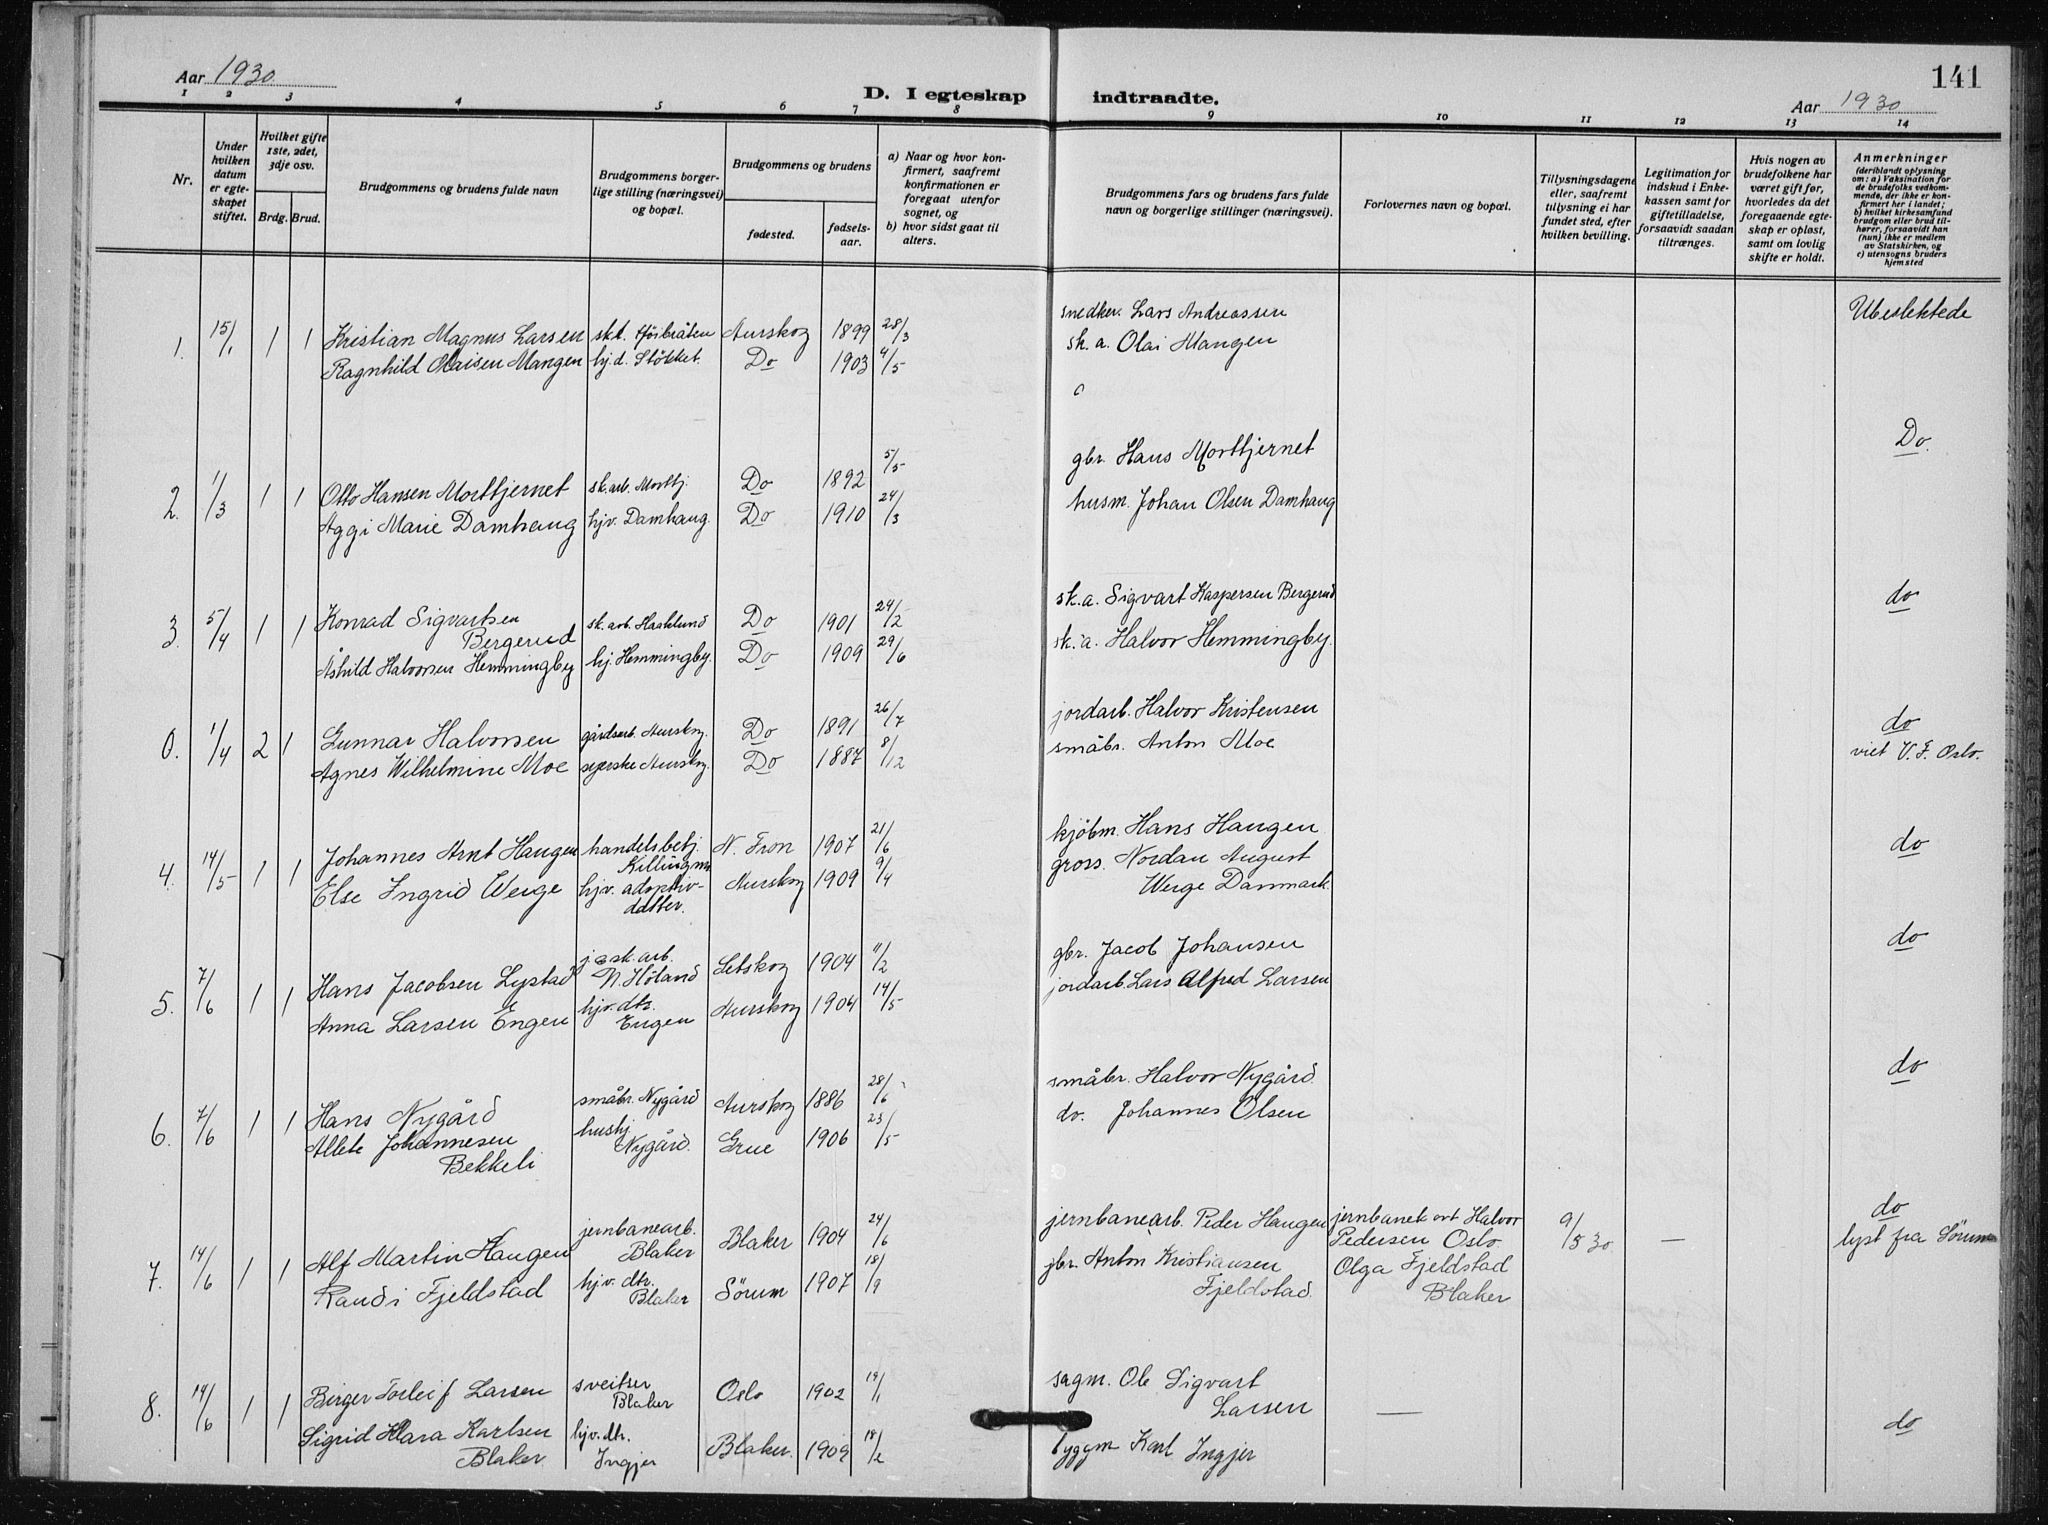 Aar 1930
D. I egteskap indtraadte.
141
Aar 1930
1 2 3 4 5 6 7 8 9 10 11 12 13 14
Nr.
Under hvilken datum er egteskapet stiftet.
Hvilket gifte 1ste, 2det, 3dje osv.
Brdg. Brud.
Brudgommens og brudens fulde navn
Brudgommens borgerlige stilling (næringsvei) og bopæl.
Brudgommens og brudens
fødested. fødselsaar.
a) Naar og hvor konfirmert, saafremt konfirmationen er foregaat utenfor sognet, og
b) hvor sidst gaat til alters.
Brudgommens fars og brudens fars fulde navn og borgerlige stillinger (næringsvei).
Forlovernes navn og bopæl.
Tillysningsdagene eller, saafremt tillysning ei har fundet sted, efter hvilken bevilling.
Legitimation for indskud i Enkekassen samt for giftetilladelse, forsaavidt saadan tiltrænges.
Hvis nogen av brudefolkene har været gift før, hvorledes da det foregaaende egteskap er opløst, samt om lovlig skifte er holdt.
Anmerkninger (deriblandt oplysning om: a) Vaksination for de brudefolks vedkommende, der ikke er konfirmert her i landet; b) hvilket kirkesamfund brudgom eller brud tilhører, forsaavidt han (hun) ikke er medlem av Statskirken, og c) utensogns bruders hjemsted
1. 15/1 1 1 Kristian Magnus Larsen sk.t. Höibråten Aurskog 1899 28/3 snedker. Lars Andreassen Ubeslektede
Ragnhild Olaisen Mangen hj.d. Stökket. Do 1903 4/5 sk. a. Olai Mangen
2. 1/3 1 1 Otto Hansen Morttjernet sk.arb. Morttj. Do 1892 5/5 gbr. Hans Morttjernet Do.
Aggi Marie Damhaug hjv. Damhaug. Do 1910 24/3 husm. Johan Olsen Damhaug
3. 5/4 1 1 Konrad Sigvartsen Bergerud sk. arb. Haaklund Do 1901 24/2 sk. a. Sigvart Kaspersen Bergerud do
Åshild Halvorsen Hemmingby hj. Hemmingby. Do 1909 29/6 sk. a. Halvor Hemmingby.
0. 1/4 2 1 Gunnar Halvorsen gårdsarb. Aurskog. Do 1891 26/7 jordarb. Halvor Kristensen do
Agnes Wilhelmine Moe syerske Aurskog. Do 1887 8/12 småbr. Anton Moe viet V. F. Oslo.
4. 14/5 1 1 Johannes Arnt Haugen handelsbetj. Killingmo N. Fron 1907 21/6 kjöbm. Hans Haugen do
Else Ingrid Werge hjv. adoptivdatter. Aurskog 1909 9/4 gross. Nordan August Werge Danmark.
5. 7/6 1 1 Hans Jacobsen Lystad j. & sk. arb. N. Höland Setskog 1904 11/2 gbr. Jacob Johansen do
Anna Larsen Engen hjv. dtr. Engen Aurskog 1904 14/5 jordarb. Lars Alfred Larsen
6. 7/6 1 1 Hans Nygård småbr. Nygård Aurskog 1886 28/6 småbr. Halvor Nygård. do
Allete Johannesen Bekkeli hushj Nygård. Grue 1906 23/5 do. Johannes Olsen
7. 14/6 1 1 Alf Martin Haugen jernbanearb. Blaker Blaker 1904 24/6 jernbanearb. Peder Haugen jernbanek ort Halvor Pedersen Oslo 9/5 30 — do
Randi Fjeldstad hjv. dtr. Blaker Sörum 1907 18/9 gbr. Anton Kristiansen Fjeldstad. Olga Fjeldstad Blaker lyst fra Sörum
8. 14/6 1 1 Birger Torleif Larsen sveitser Blaker Oslo 1902 19/1 sagm. Ole Sigvart Larsen —
Sigrid Klara Karlsen Blaker hjv. dtr. Ingjer Blaker. 1909 18/2 byggm Karl Ingjer do